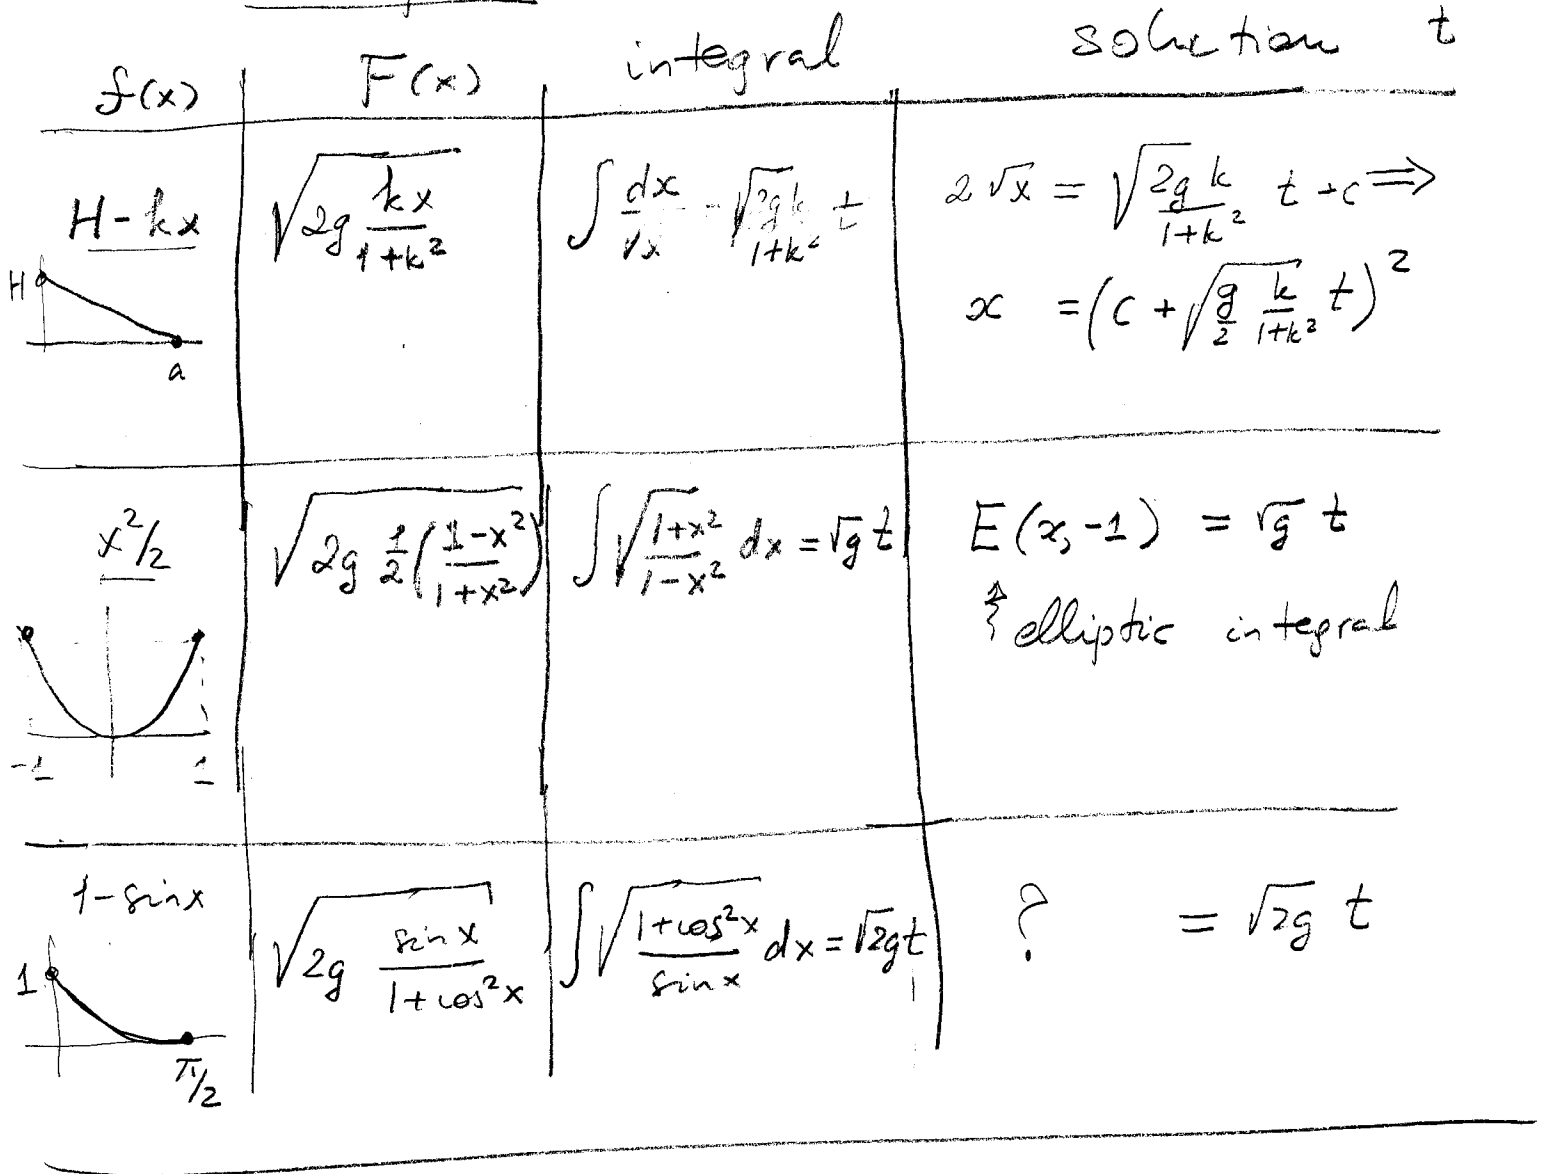 f(x) F(x) integral solution t
H-kx √(2g kx/(1+k²)) ∫ dx/√x = √(2gk/(1+k²)) t 2√x = √(2g k/(1+k²)) t + c ⇒
x = (c + √(g/2 k/(1+k²)) t)²
H
a
x²/2 √(2g 1/2 ((1-x²)/(1+x²))) ∫ √((1+x²)/(1-x²)) dx = √g t E(x,-1) = √g t
elliptic integral
-1 1
1-sinx √(2g sin x/(1+cos²x)) ∫ √((1+cos²x)/sin x) dx = √2g t ? = √2g t
1
π/2